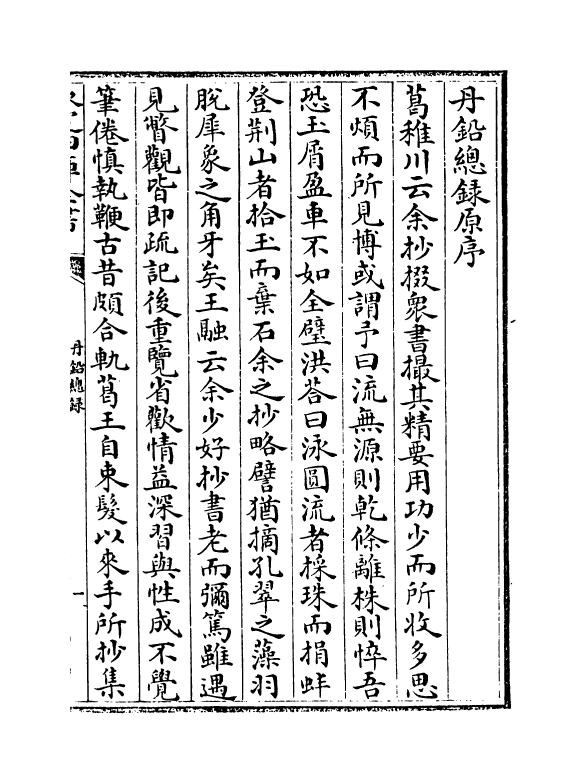 丹鉛總錄原序
葛稚川云余抄掇衆書撮其精要用功少而所收多思
不煩而所見博或謂予曰流無源則乾條離株則悴吾
恐玉屑盈車不如全璧洪荅曰泳圓流者採珠而捐蚌
登荆山者拾玉而棄石余之抄略譬猶摘孔翠之藻羽
脫犀象之角牙矣王融云余少好抄書老而彌篤雖遇
見瞥觀皆即疏記後重覽省歡情益深習與性成不覺
筆倦慎執鞭古昔頗合軌葛王自束髮以來手所抄集
丹鉛總錄
一